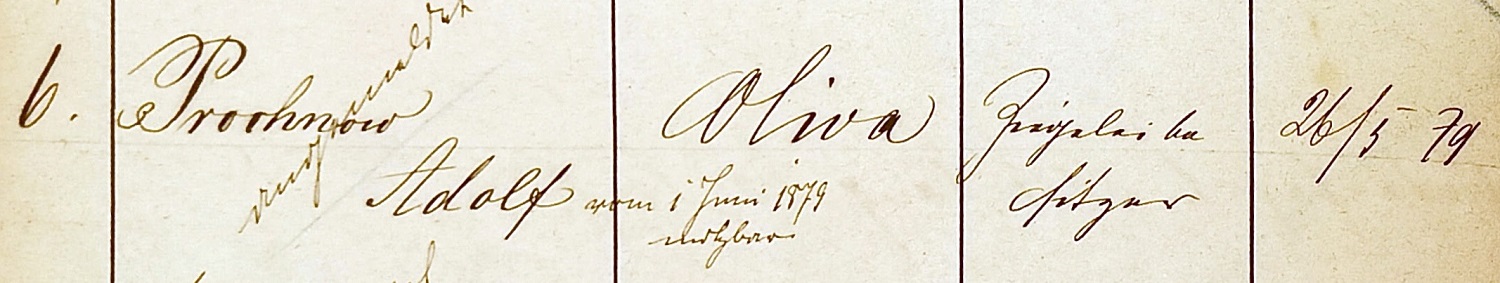 6. Prochnow Oliva Ziegelei be 26/5 79
Adolf vom 1 Juni 1879 sitzer
nutzbar
angemeldet